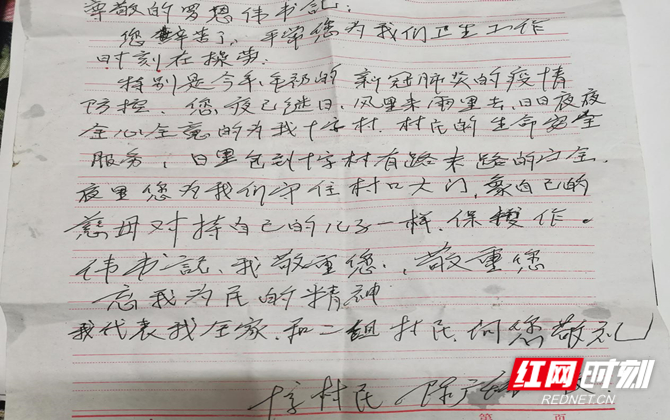 尊敬的罗恩伟书记:
您辛苦了,平常您为我们卫生工作
时刻在操劳.
特别是今年年初的新冠肺炎的疫情
防控.您夜已继日,风里来雨里去,日日夜夜
全心全意的为我十字村.村民的生命安全
服务,日里包到十字村有路来路的安全.
夜里您为我们守住村口大门,象自己的
慈母对待自己的儿子一样.保护作。
伟书记、我敬重您.,敬重您
忘我为民的精神
我代表我全家.和二组村民.向您敬礼
十字村民 陈
红网时刻
REDNET.CN
第 页